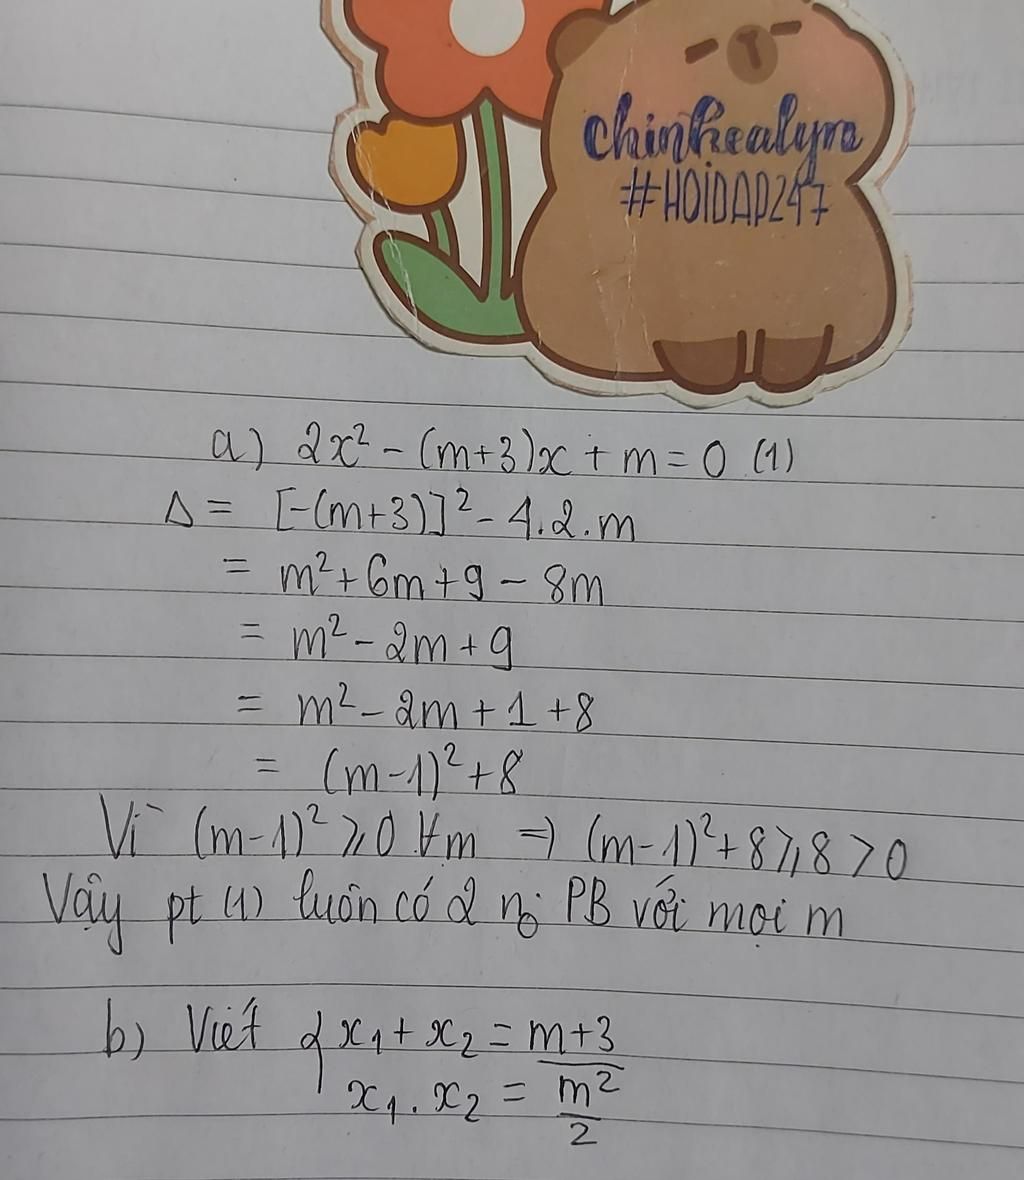 chinhealyra
#HOIDAP247
a) 2x² - (m+3)x + m = 0 (1)
Δ = [-(m+3)]² - 4.2.m
= m² + 6m + 9 - 8m
= m² - 2m + 9
= m² - 2m + 1 + 8
= (m-1)² + 8
Vì (m-1)² ⩾ 0 ∀m ⇒ (m-1)² + 8 ⩾ 8 > 0
Vậy pt (1) luôn có 2 no PB với mọi m
b) Viét { x₁ + x₂ = (m+3)/2
x₁ . x₂ = m/2